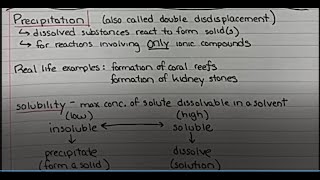 Precipitation (also called double disdisplacement)
↳ dissolved substances react to form solid(s)
↳ for reactions involving only ionic compounds
Real life examples: formation of coral reefs
formation of kidney stones
solubility - max conc. of solute dissolvable in a solvent
(low) (high)
insoluble ←→ soluble
↓ ↓
precipitate dissolve
(form a solid) (solution)